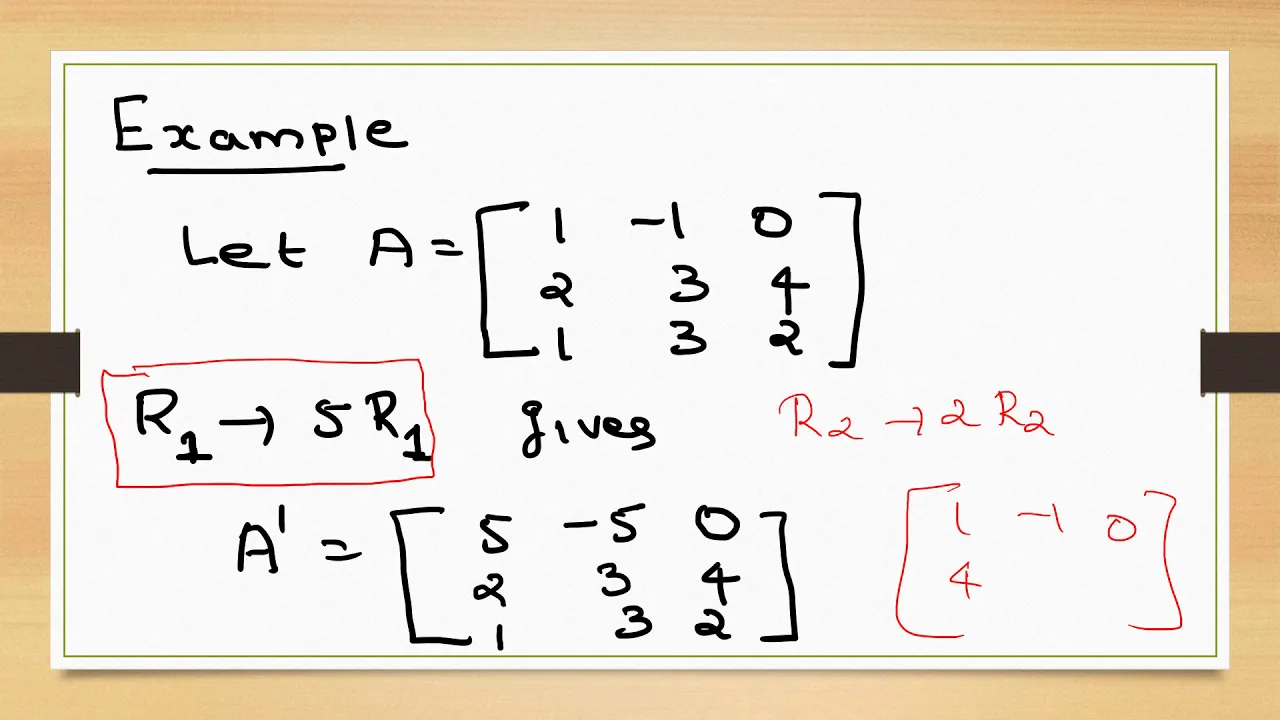 Example
Let A = [ 1 -1 0
2 3 4
1 3 2 ]
R1 → 5 R1 gives R2 → 2 R2
A' = [ 5 -5 0
2 3 4
1 3 2 ]
[ 1 -1 0
4 ]